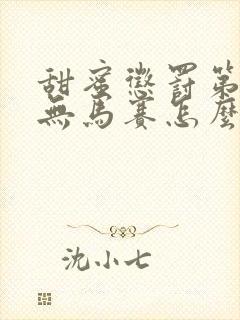 甜蜜懲罰第
無馬賽怎麼
沈小七